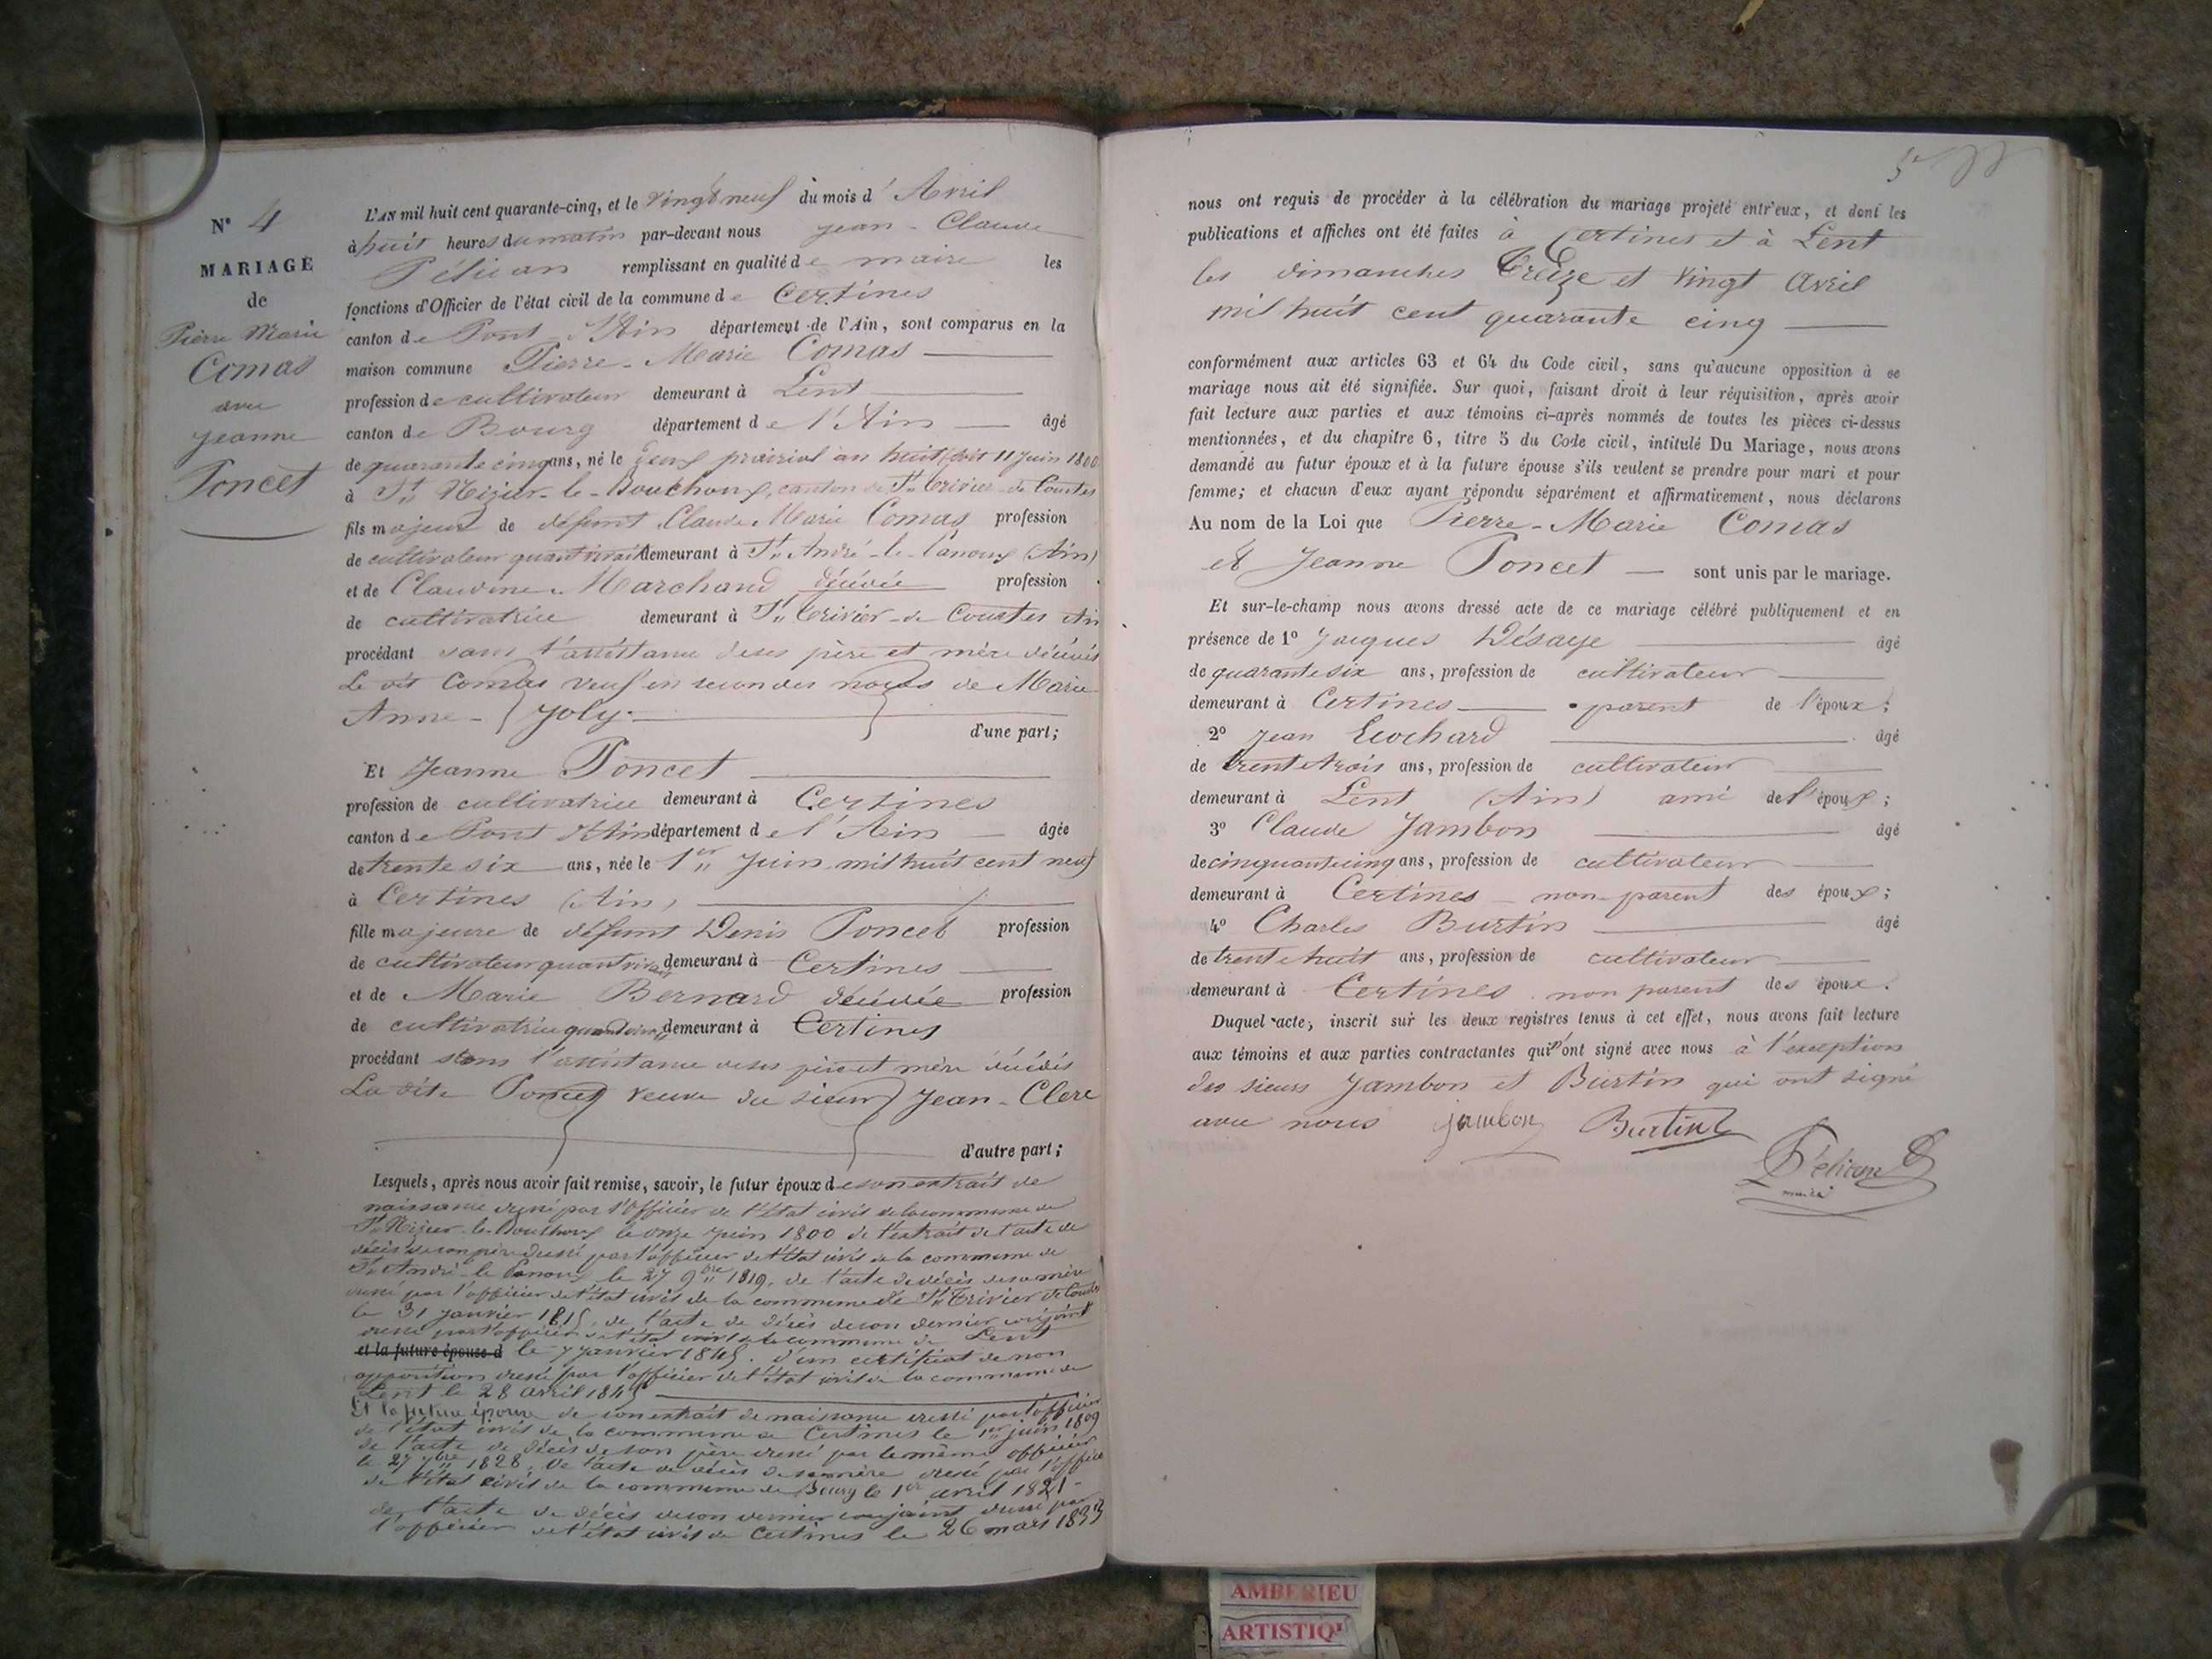 N° 4
MARIAGE
de
Pierre Marie
Comas
avec
Jeanne
Poncet
L'AN mil huit cent quarante-cinq, et le vingt neuf du mois d'Avril
à huit heures du matin par-devant nous Jean-Claude
Pélican remplissant en qualité de maire les
fonctions d'Officier de l'état civil de la commune de Certines
canton de Pont d'Ain département de l'Ain, sont comparus en la
maison commune Pierre-Marie Comas
profession de cultivateur demeurant à Lent
canton de Bourg département de l'Ain âgé
de quarante cinq ans, né le deux prairial an huit (soit 11 Juin 1800
à St Nizier-le-Bouchoux, canton de St Trivier de Courtes
fils majeur de défunt Claude Marie Comas profession
de cultivateur quant vivait demeurant à St André-le-Panoux (Ain)
et de Claudine Marchand décédée profession
de cultivatrice demeurant à St Trivier-de Courtes Ain
procédant sans l'assistance de ses père et mère décédés
Le dit Comas veuf en secondes noces de Marie
Anne-Joly.
d'une part;
Et Jeanne Poncet
profession de cultivatrice demeurant à Certines
canton de Pont d'Ain département de l'Ain âgée
de trente six ans, née le 1er Juin mil huit cent neuf
à Certines (Ain)
fille majeure de défunt Denis Poncet profession
de cultivateur quant vivait demeurant à Certines
et de Marie Bernard décédée profession
de cultivatrice quand vivait demeurant à Certines
procédant sans l'assistance de ses père et mère décédés
La dite Poncet veuve du sieur Jean-Clerc
d'autre part;
Lesquels, après nous avoir fait remise, savoir, le futur époux de son extrait de
naissance dressé par l'Officier de l'état civil de la commune de
St Nizier-le-Bouchoux le onze Juin 1800 de l'extrait de l'acte de
décès de son père dressé par l'officier de l'état civil de la commune de
St André-le Panoux le 27 9bre 1819, de l'acte de décès de sa mère
dressé par l'officier de l'état civil de la commune de St Trivier de Courtes
le 31 janvier 1815, de l'acte de décès de son dernier conjoint
dressé par l'officier de l'état civil de la commune de Lent
et la future épouse d le 7 janvier 1845. d'un certificat de non
opposition dressé par l'officier de l'état civil de la commune de
Lent le 28 avril 1845
Et la future épouse de son extrait de naissance dressé par l'officier
de l'état civil de la commune de Certines le 1er juin 1809
de l'acte de décès de son père dressé par le même officier
le 27 7bre 1828, de l'acte de décès de sa mère dressé par l'officier
de l'état civil de la commune de Bourg le 1er avril 1821
de l'acte de décès de son dernier conjoint dressé par
l'officier de l'état civil de Certines le 26 mars 1833
5
nous ont requis de procéder à la célébration du mariage projeté entr'eux, et dont les
publications et affiches ont été faites à Certines et à Lent
les dimanches treize et vingt Avril
mil huit cent quarante cinq
conformément aux articles 63 et 64 du Code civil, sans qu'aucune opposition à ce
mariage nous ait été signifiée. Sur quoi, faisant droit à leur réquisition, après avoir
fait lecture aux parties et aux témoins ci-après nommés de toutes les pièces ci-dessus
mentionnées, et du chapitre 6, titre 5 du Code civil, intitulé Du Mariage, nous avons
demandé au futur époux et à la future épouse s'ils veulent se prendre pour mari et pour
femme; et chacun d'eux ayant répondu séparément et affirmativement, nous déclarons
Au nom de la Loi que Pierre-Marie Comas
et Jeanne Poncet sont unis par le mariage.
Et sur-le-champ nous avons dressé acte de ce mariage célébré publiquement et en
présence de 1° Jacques Désaye âgé
de quarante six ans, profession de cultivateur
demeurant à Certines parent de l'époux;
2° Jean Ecochard âgé
de trente trois ans, profession de cultivateur
demeurant à Lent (Ain) ami de l'époux;
3° Claude Jambon âgé
de cinquante cinq ans, profession de cultivateur
demeurant à Certines non-parent des époux;
4° Charles Burtin âgé
de trente huit ans, profession de cultivateur
demeurant à Certines non parent des époux.
Duquel acte, inscrit sur les deux registres tenus à cet effet, nous avons fait lecture
aux témoins et aux parties contractantes qui n'ont signé avec nous à l'exception
des sieurs Jambon et Burtin qui ont signé
avec nous jambon Burtin
Pélican
maire
AMBERIEU
ARTISTIQ